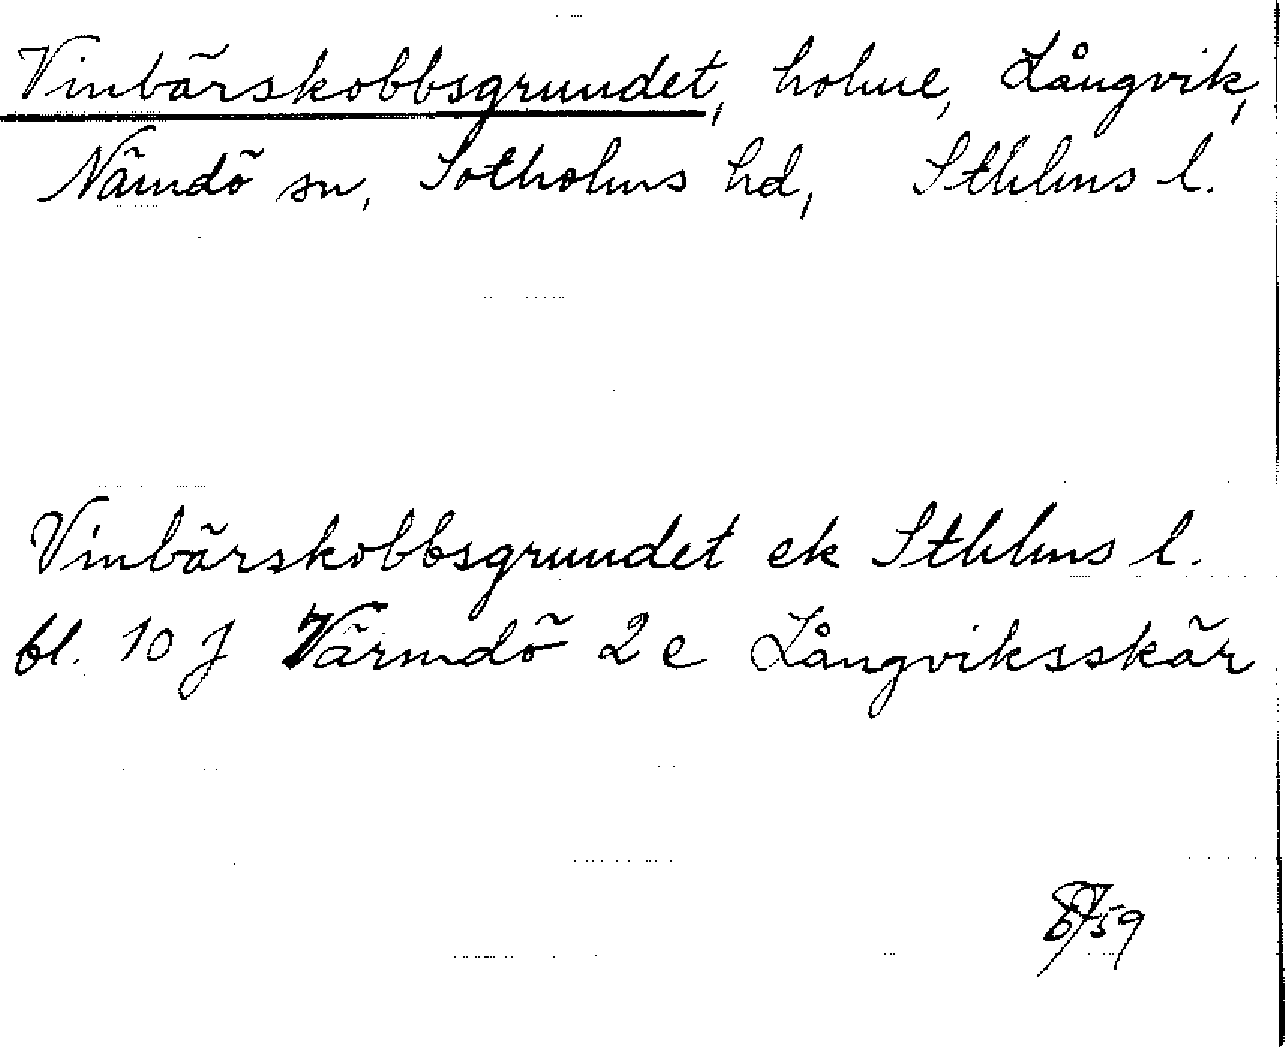 Vinbärskobbsgrundet, holme, Långvik,
Nämdö sn, Sotholms hd, Sthlms l.
Vinbärskobbsgrundet ek Sthlms l.
bl. 10 J Värmdö 2 e Långviksskär